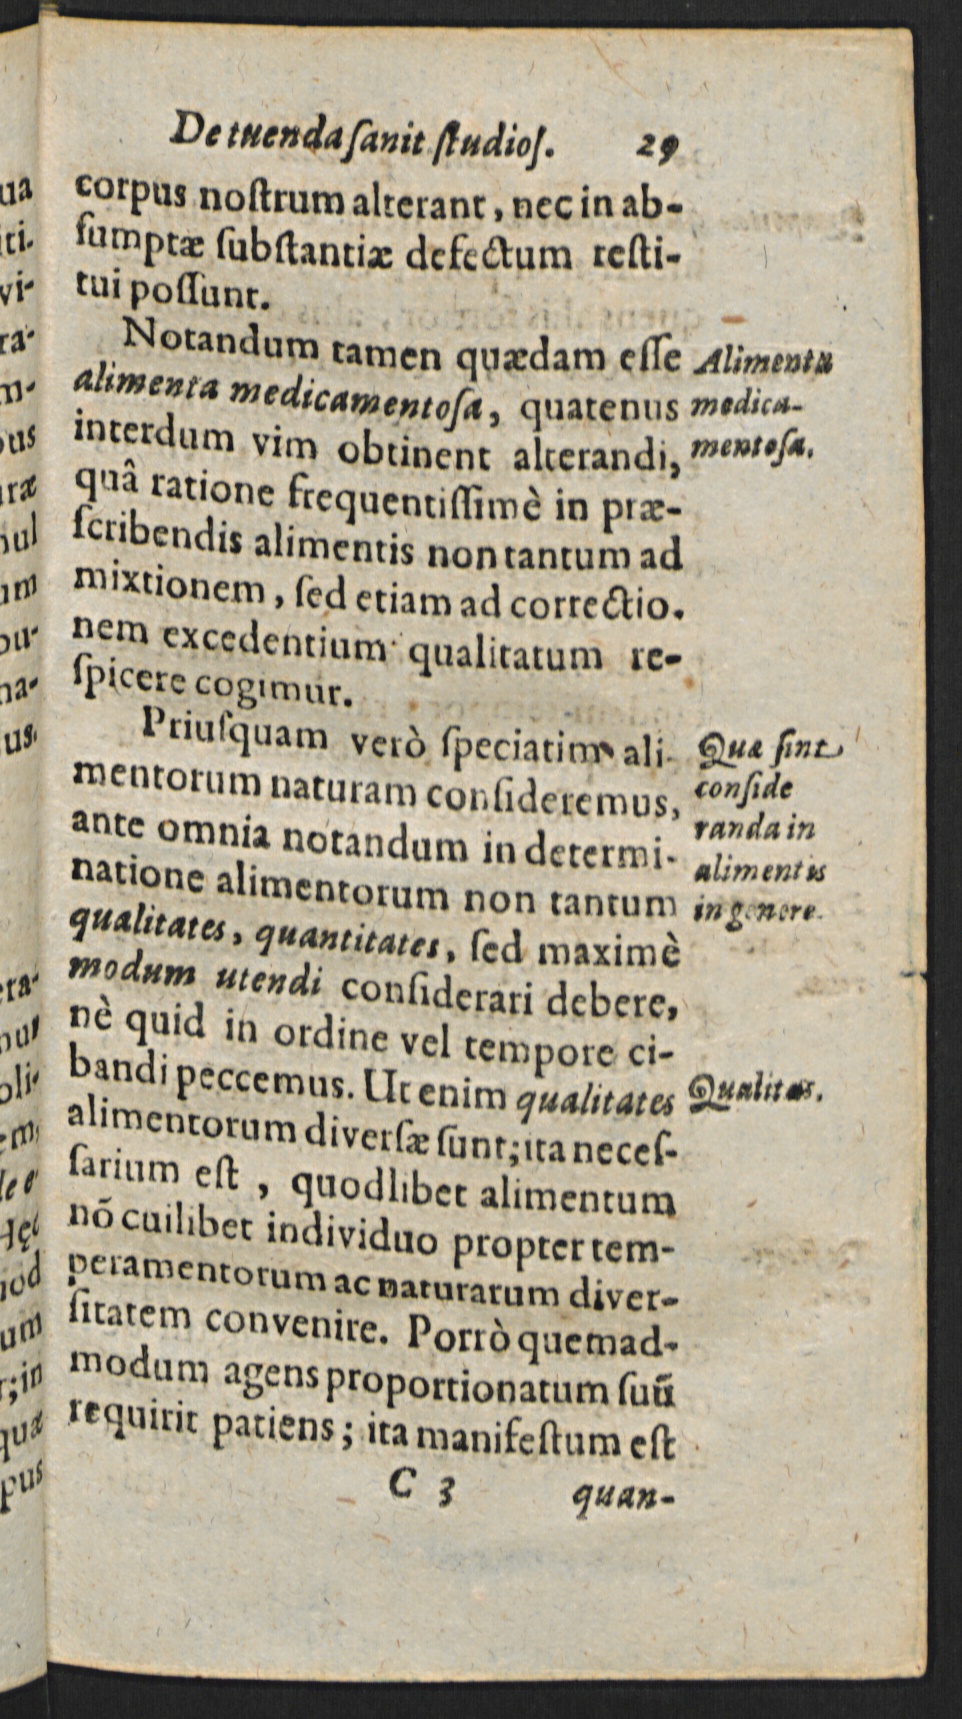 De tuenda ſanit ſtudioſ. 29
corpus noſtrum alterant, nec in ab-
ſumptæ ſubſtantiæ defectum reſti-
tui poſſunt.
Notandum tamen quædam eſſe
alimenta medicamentoſa, quatenus
interdum vim obtinent alterandi,
quâ ratione frequentiſſimè in præ-
ſcribendis alimentis non tantum ad
mixtionem, ſed etiam ad correctio.
nem excedentium qualitatum re-
ſpicere cogimur.
Alimenta
medica-
mentoſa.
Priuſquam verò ſpeciatim ali-
mentorum naturam conſideremus,
ante omnia notandum in determi-
natione alimentorum non tantum
qualitates, quantitates, ſed maximè
modum utendi conſiderari debere,
nè quid in ordine vel tempore ci-
bandi peccemus. Ut enim qualitates
alimentorum diverſæ ſunt; ita neceſ-
ſarium eſt, quodlibet alimentum
nō cuilibet individuo propter tem-
peramentorum ac naturarum diver-
ſitatem convenire. Porrò quemad-
modum agens proportionatum ſuū
requirit patiens; ita manifeſtum eſt
Quæ ſint
conſide
randa in
alimentis
in genere.
Qualitas.
C 3 quan-
ua
iti.
vi-
ra-
m-
us
ræ
ul
um
ou-
na-
us.
era-
nur
oli-
em,
iod
um
r; in
quæ
pus